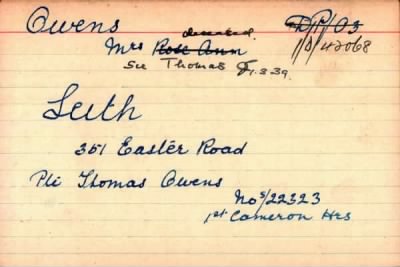 Owens D/P/03
deceased 1/D/42068
Mrs Rose Ann
See Thomas 1.3.39.
Leith
351 Easter Road
Pte Thomas Owens
No S/22323
1st Cameron Hrs